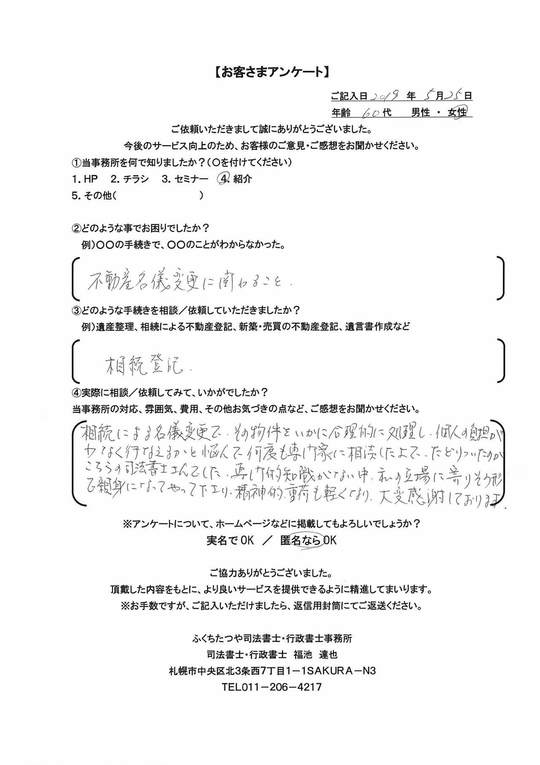 【お客さまアンケート】
ご記入日 2019 年 5月25日
年齢 60代 男性 ・ 女性
ご依頼いただきまして誠にありがとうございました。
今後のサービス向上のため、お客様のご意見・ご感想をお聞かせください。
①当事務所を何で知りましたか？(○を付けてください)
1. HP 2. チラシ 3. セミナー 4. 紹介
5. その他( )
②どのような事でお困りでしたか？
例)○○の手続きで、○○のことがわからなかった。
不動産名儀変更に関わること.
③どのような手続きを相談／依頼していただきましたか？
例)遺産整理、相続による不動産登記、新築・売買の不動産登記、遺言書作成など
相続登記.
④実際に相談／依頼してみて、いかがでしたか？
当事務所の対応、雰囲気、費用、その他お気づきの点など、ご感想をお聞かせください。
相続による名儀変更で、その物件をいかに合理的に処理し、個人の負担が
少なく行なえるかと悩んで何度も専門家に相談した上で、たどりついたのが
こちらの司法書士さんでした。専門的知識がない中、私の立場に寄りそう形
で親身になってやって下さり、精神的重荷も軽くなり、大変感謝しております。
※アンケートについて、ホームページなどに掲載してもよろしいでしょうか？
実名でOK ／ 匿名ならOK
ご協力ありがとうございました。
頂戴した内容をもとに、より良いサービスを提供できるように精進してまいります。
※お手数ですが、ご記入いただけましたら、返信用封筒にてご返送ください。
ふくちたつや司法書士・行政書士事務所
司法書士・行政書士 福池 達也
札幌市中央区北3条西7丁目1－1SAKURA－N3
TEL011－206－4217